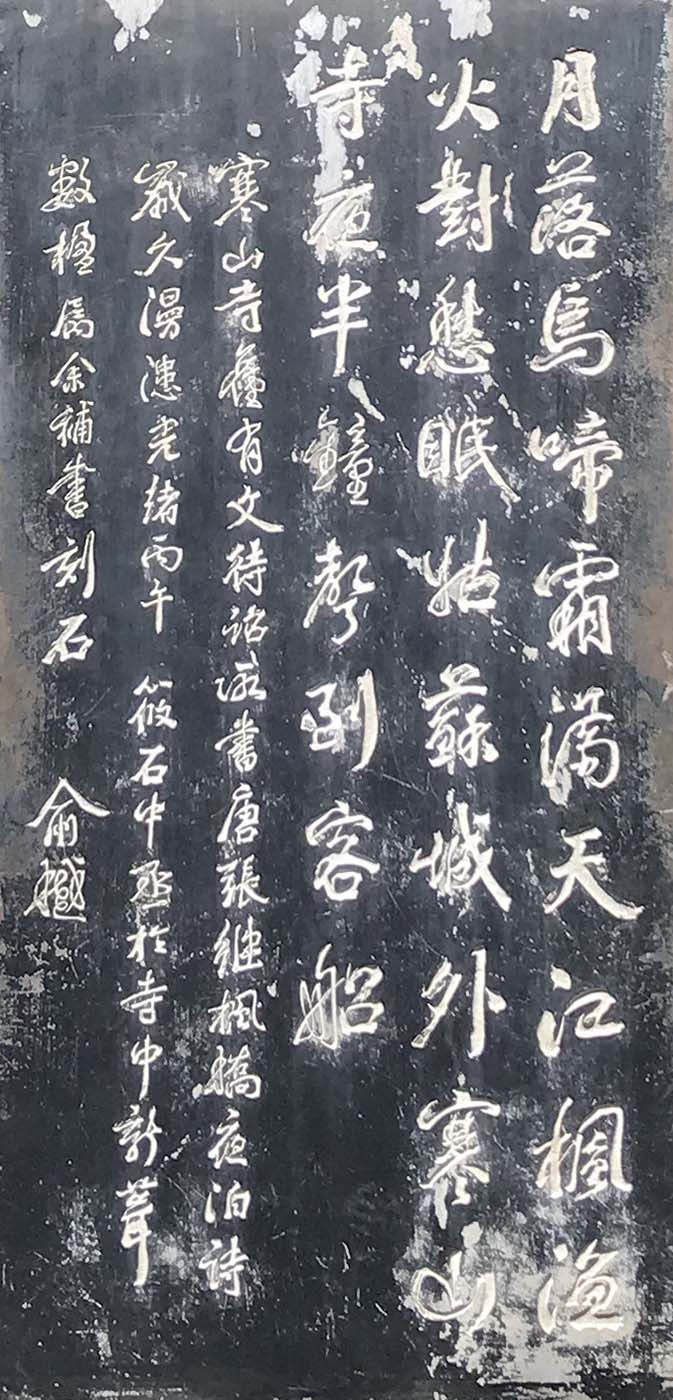 月落烏啼霜滿天江楓漁
火對愁眠姑蘇城外寒山
寺夜半鐘聲到客船
寒山寺舊有文待詔所書唐張継楓橋夜泊詩
歲久漫漶光緒丙午 筱石中丞於寺中新葺
數楹属余補書刻石 俞樾